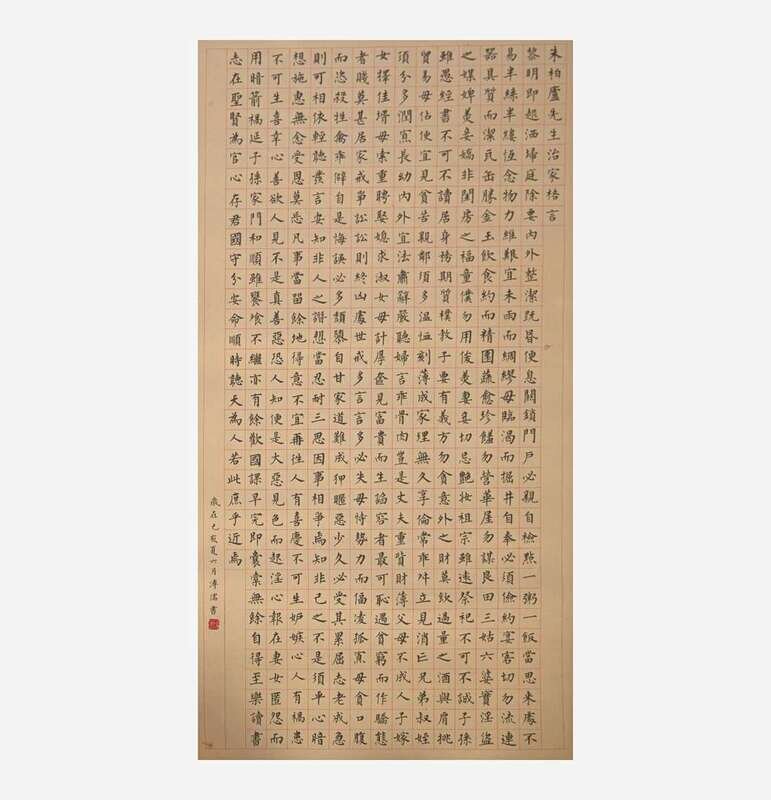 朱柏廬先生治家格言
黎明即起洒掃庭除要內外整潔既昏便息關鎖門戶必親自檢點一粥一飯當思來處不
易半絲半縷恆念物力維艱宜未雨而綢繆毋臨渴而掘井自奉必須儉約宴客切勿流連
器具質而潔瓦缶勝金玉飲食約而精園蔬愈珍饈勿營華屋勿謀良田三姑六婆實淫盜
之媒婢美妾嬌非閨房之福童僕勿用俊美妻妾切忌艷妝祖宗雖遠祭祀不可不誠子孫
雖愚經書不可不讀居身務期質樸教子要有義方勿貪意外之財莫飲過量之酒與肩挑
貿易毋佔便宜見貧苦親鄰須多溫恤刻薄成家理無久享倫常乖舛立見消亡兄弟叔姪
須分多潤寡長幼內外宜法肅辭嚴聽婦言乖骨肉豈是丈夫重貲財薄父母不成人子嫁
女擇佳壻毋索重聘娶媳求淑女毋計厚奩見富貴而生諂容者最可恥遇貧窮而作驕態
者賤莫甚居家戒爭訟訟則終凶處世戒多言言多必失毋恃勢力而偪凌孤寡毋貪口腹
而恣殺牲禽乖僻自是悔誤必多頹隳自甘家道難成狎暱惡少久必受其累屈志老成急
則可相依輕聽發言安知非人之譖愬當忍耐三思因事相爭焉知非己之不是須平心暗
想施惠無念受恩莫忘凡事當留餘地得意不宜再往人有喜慶不可生妒嫉心人有禍患
不可生喜幸心善欲人見不是真善惡恐人知便是大惡見色而起淫心報在妻女匿怨而
用暗箭禍延子孫家門和順雖饔飧不繼亦有餘歡國課早完即囊橐無餘自得至樂讀書
志在聖賢為官心存君國守分安命順時聽天為人若此庶乎近焉
歲在己亥夏六月溥儒書